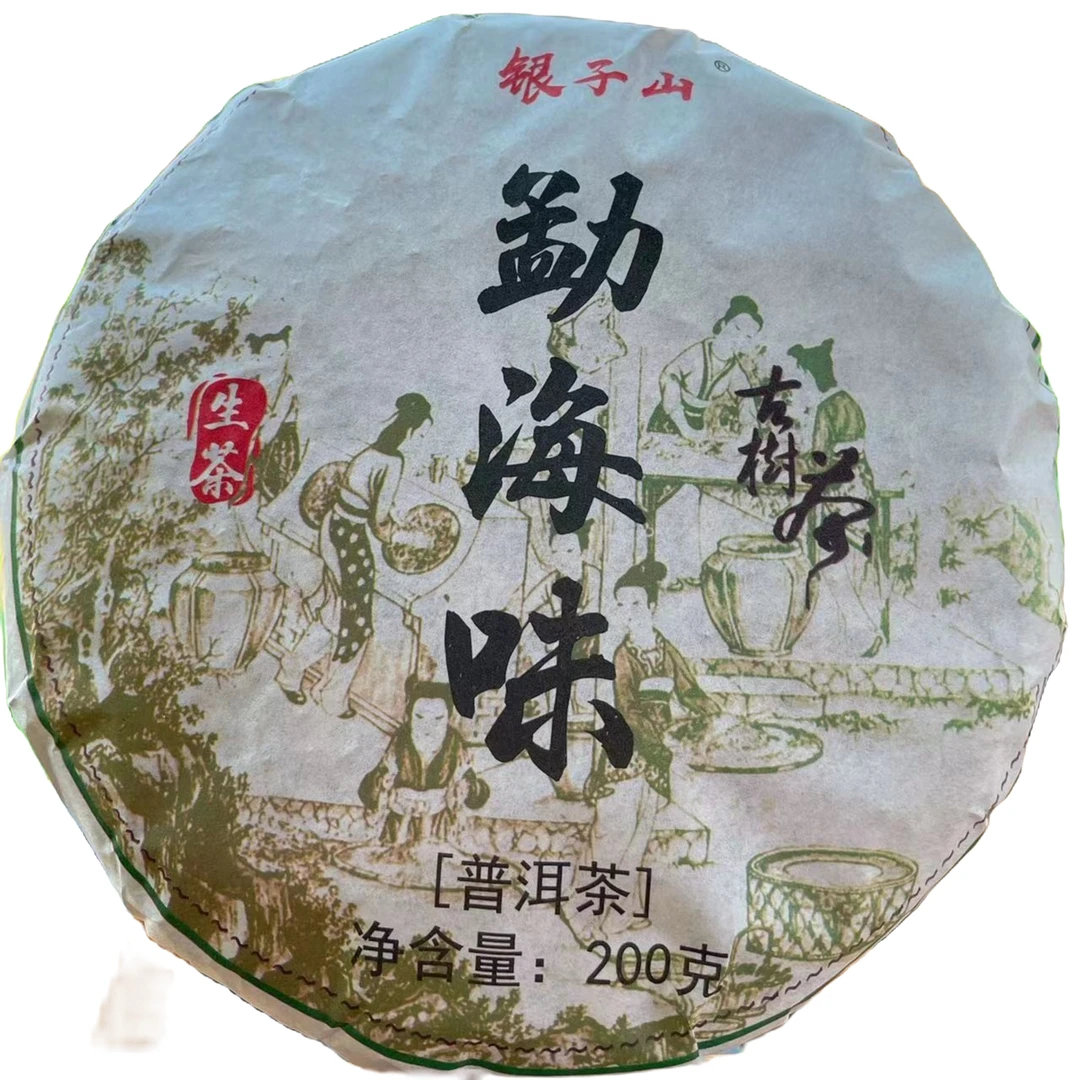 银子山®
勐海味
古樹茶
生茶
[普洱茶]
净含量：200克